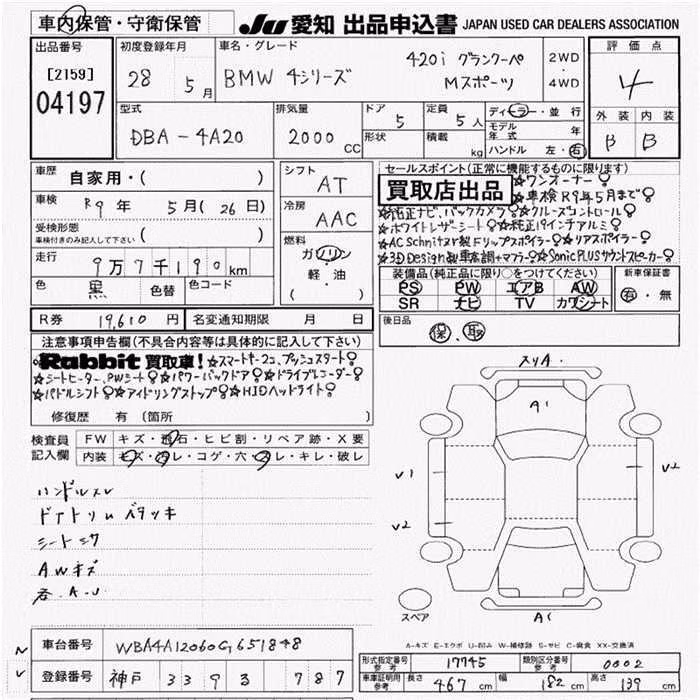 車内保管・守衛保管
JU 愛知 出品申込書 JAPAN USED CAR DEALERS ASSOCIATION
出品番号
[2159]
04197
初度登録年月
28 5月
車名・グレード
BMW 4シリーズ
420i グランクーペ
Mスポーツ
2WD
・
4WD
評価点
4
外装 内装
B B
型式
DBA-4A20
排気量
2000 CC
ドア
5
定員
5人
形状
積載
kg
ディーラー・並行
モデル年式 年
ハンドル 左・右
車歴
自家用・( )
車検
R9年 5月(26日)
受検形態
車検付きのみ記入して下さい ( )
走行
9万7千190km
色
黒
色替
色コード
シフト
AT
冷房
AAC
燃料
ガソリン
・
軽・油
( )
セールスポイント(正常に機能するものに限ります)
買取店出品
☆ワンオーナー
☆車検R9年5月まで
☆純正ナビ、バックカメラ ☆クルーズコントロール
☆ホワイトレザーシート ☆純正19インチアルミ
☆AC Schnitzer製Fリップスポイラー ☆リアスポイラー
☆3D Design製車高調+マフラー ☆Sonic PLUSサウンドスピーカー
装備品(純正品に限り○をつけてください)
PS PW エアB AW
SR ナビ TV カワシート
新車保証書
有・無
後日品
保、取
R券 19,610円
名変通知期限 月 日
注意事項申告欄(不具合内容等は具体的に記入して下さい)
Rabbit 買取車! ☆スマートキー2コ、プッシュスタート
☆シートヒーター、PWシート ☆パワーバックドア ☆ドライブレコーダー
☆パドルシフト ☆アイドリングストップ ☆HIDヘッドライト
修復歴 有 (箇所 )
検査員
記入欄
FW キズ・飛石・ヒビ割・リペア跡・X要
内装 キズ・汚レ・コゲ・穴・スレ・キレ・破レ
ハンドルスレ
ドアトリム ベタツキ
シート
AWキズ
各.A.U
スリA.
A1
V1
V2
V2
A1
スペア
A-キズ E-エクボ U-凹み W-補修跡 S-サビ C-腐食 XX-交換済
車台番号
WBA4A12060G651848
登録番号
神戸 339 3 787
形式指定番号
参考
17745
類別区分番号
参考
0002
車庫証明用
参考
長さ 467cm 幅 182cm 高さ 139cm